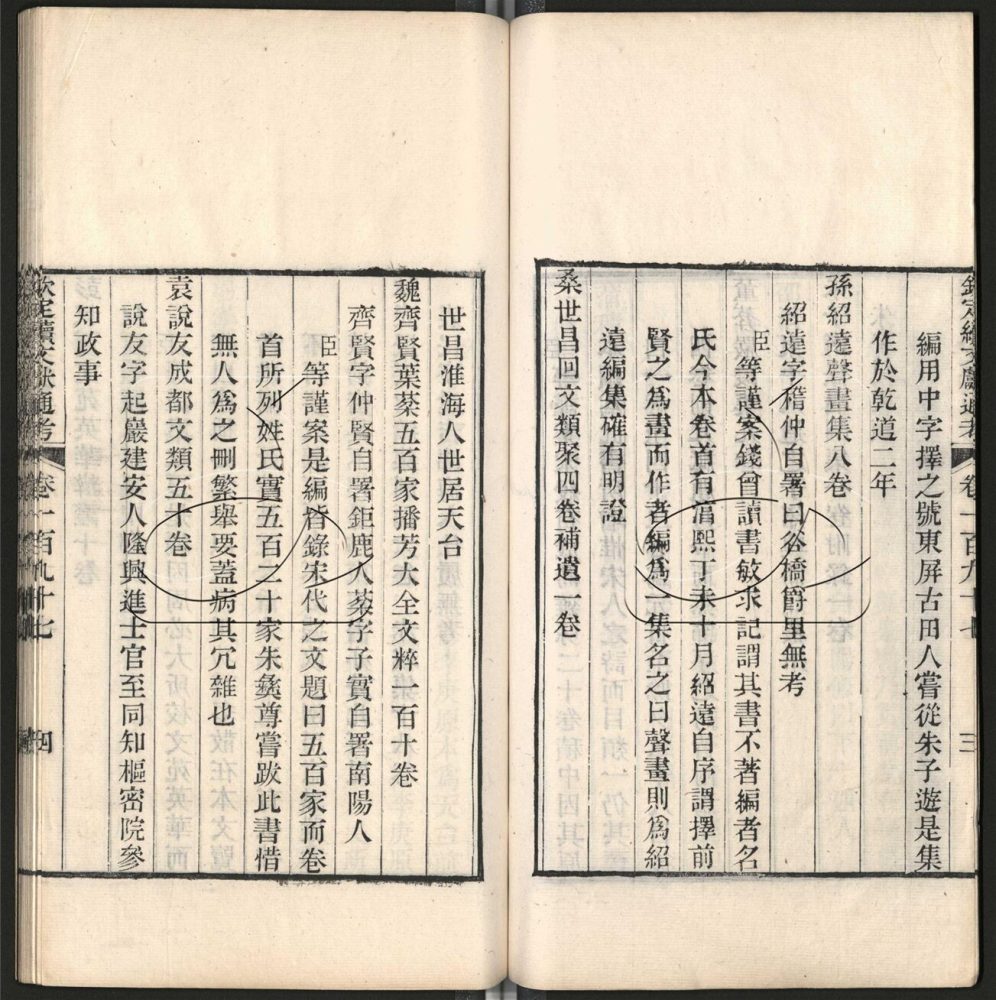 欽定續文獻通考 卷一百九十七 三
編用中字擇之號東屏古田人嘗從朱子遊是集
作於乾道二年
孫紹遠聲畫集八卷
紹遠字稽仲自署曰谷橋爵里無考
臣等謹案錢曾讀書敏求記謂其書不著編者名
氏今本卷首有淳熙丁未十月紹遠自序謂擇前
賢之爲畫而作者編爲一集名之曰聲畫則爲紹
遠編集確有明證
桑世昌回文類聚四卷補遺一卷
世昌淮海人世居天台
魏齊賢葉棻五百家播芳大全文粹百十卷
齊賢字仲賢自署鉅鹿人棻字子實自署南陽人
臣等謹案是編皆錄宋代之文題曰五百家而卷
首所列姓氏實五百二十家朱彝尊嘗跋此書惜
無人爲之刪繁舉要蓋病其冗雜也
袁說友成都文類五十卷
說友字起巖建安人隆興進士官至同知樞密院參
知政事
欽定續文獻通考 卷一百九十七 四